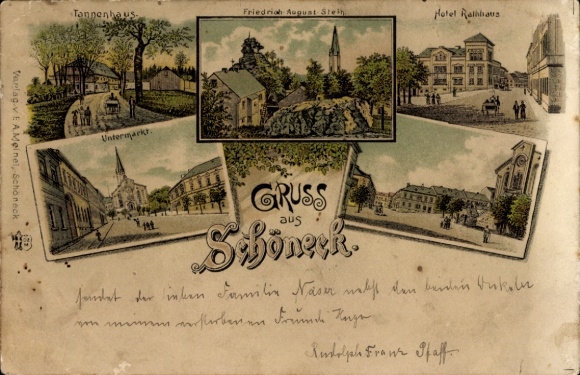 Tannenhaus.
Friedrich-August-Stein
Hotel Rathhaus
Untermarkt.
Verlag v. E. A. Meinel, Schöneck
GRUSS
aus
Schöneck.
sendet der lieben Familie Näser nebst den beiden Onkeln
von meinem verstorbenen Freunde Hugo
Rudolph Franz Pfaff.